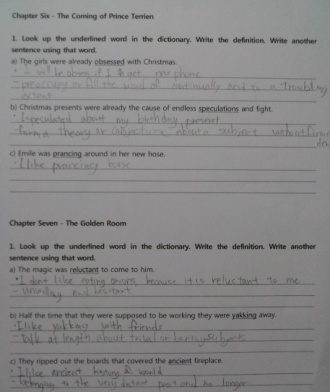 Chapter Six - The Coming of Prince Terrien
1. Look up the underlined word in the dictionary. Write the definition. Write another
sentence using that word.
a) The girls were already obsessed with Christmas.
• I will be obsess if I get new phone
- preoccupy or fill the mind of continually and to a troubling
extent
b) Christmas presents were already the cause of endless speculations and fight.
• I speculated about my birthday present
- form a theory or conjecture about a subject without firm
c) Emile was prancing around in her new hose.
• I like prancing horse
Chapter Seven - The Golden Room
1. Look up the underlined word in the dictionary. Write the definition. Write another
sentence using that word.
a) The magic was reluctant to come to him.
• I don't like eating onions, because it is reluctant to me
- unwilling and hesitant
b) Half the time that they were supposed to be working they were yakking away.
• I like yakking with friends
- talk at length about trivial or boring subjects
c) They ripped out the boards that covered the ancient fireplace.
• I like ancient history & world
- belonging to the very distant past and no longer